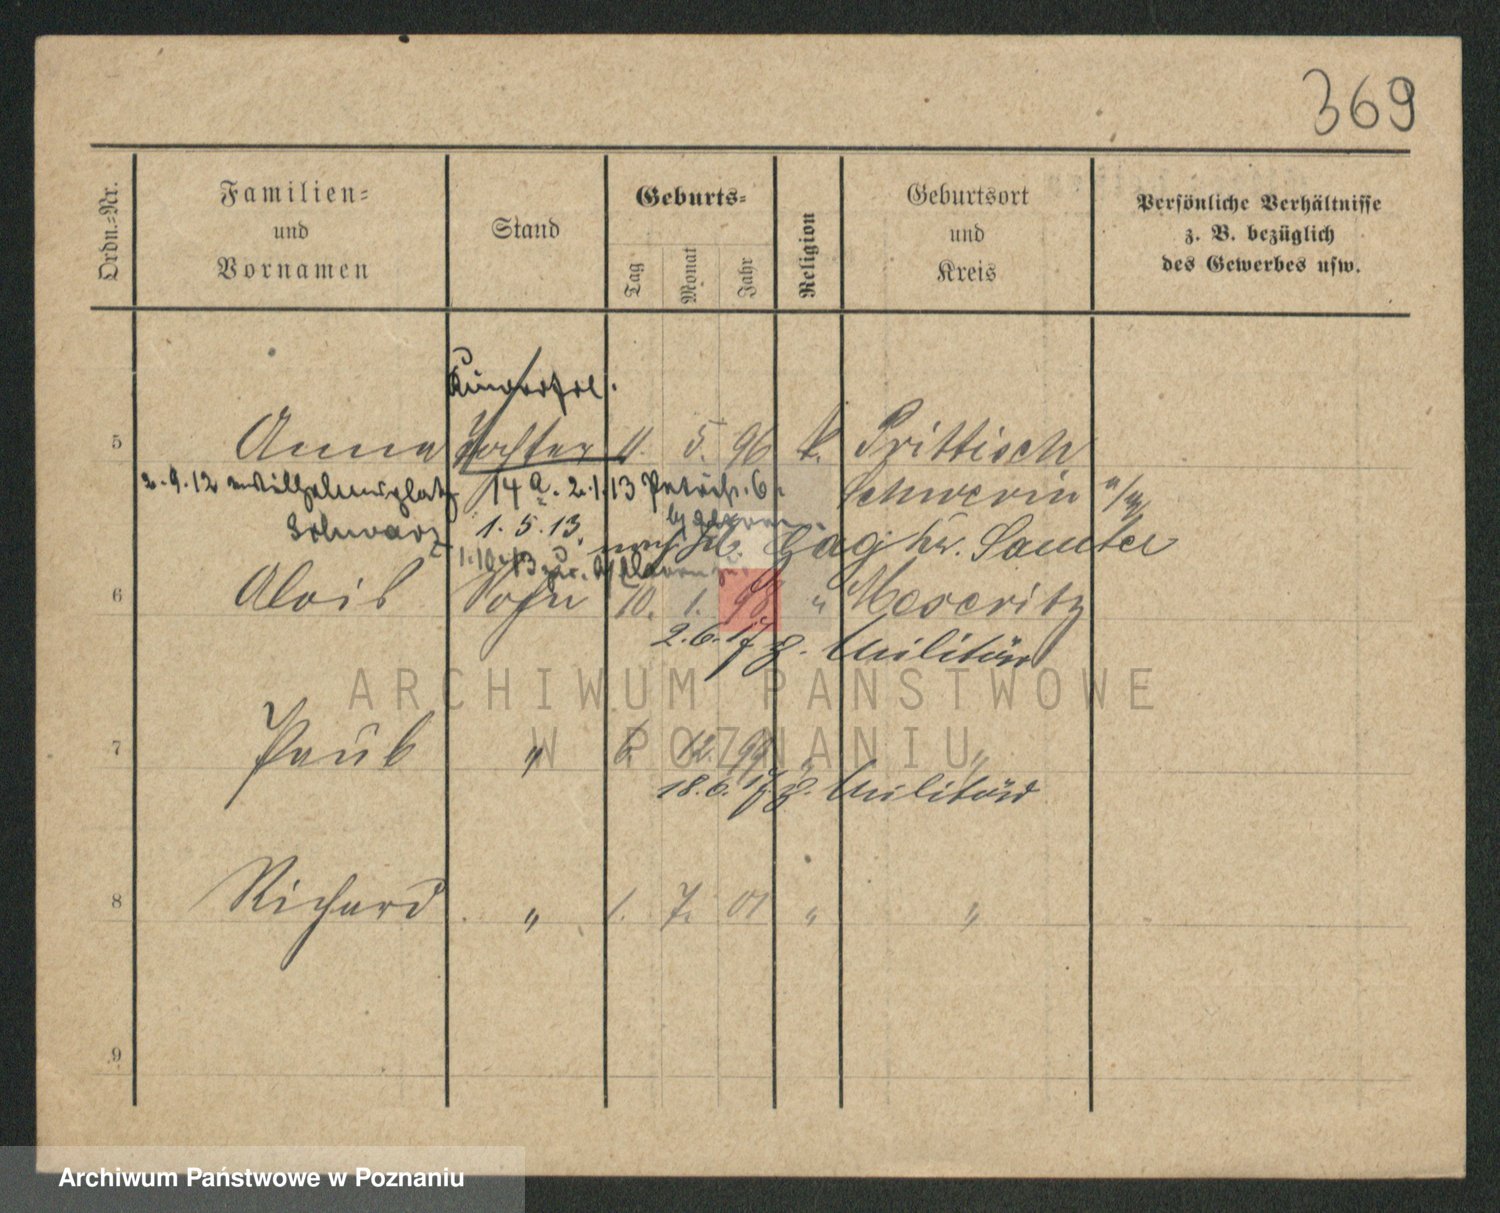 369
Ordn.-Nr.
Familien-
und
Vornamen
Stand
Geburts-
Tag
Monat
Jahr
Religion
Geburtsort
und
Kreis
Persönliche Verhältnisse
z. B. bezüglich
des Gewerbes usw.
Kinderfrl.
5 Anna Tochter 11. 5. 96 k. Prittisch
2.9.12 Wilhelmsplatz 14a. 2.1.13 6. Schwerin a/W
Schwarz 1. 5. 13. nach Samter
1.10.13 zur.
6 Alois Sohn 10. 1. 98 " Meseritz
2.6.17 z. Militär
7 Paul " 6. 12. 99 " "
18.6.17 z. Militär
8 Richard " 1. 7. 01 " "
9
ARCHIWUM PAŃSTWOWE
W POZNANIU
Archiwum Państwowe w Poznaniu